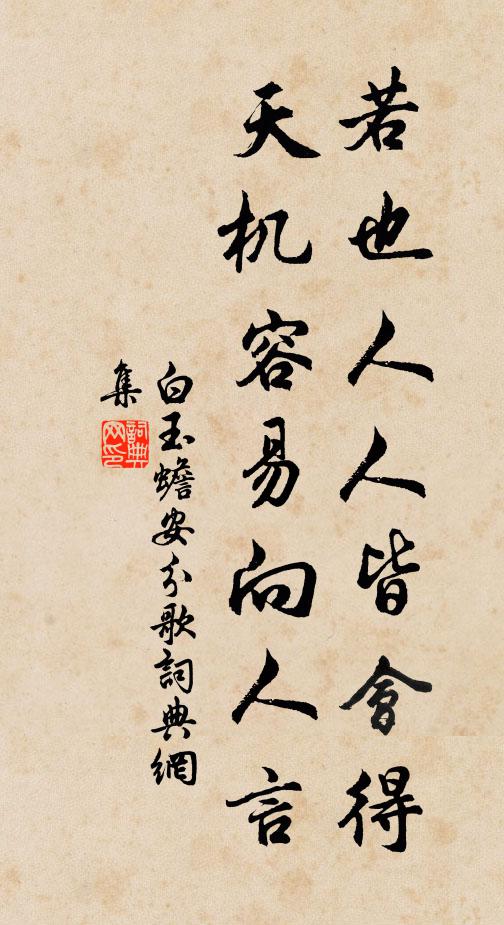 若也人人皆會得
天机容易向人言
白玉蟾安分歌詞典網
集
詞典网印